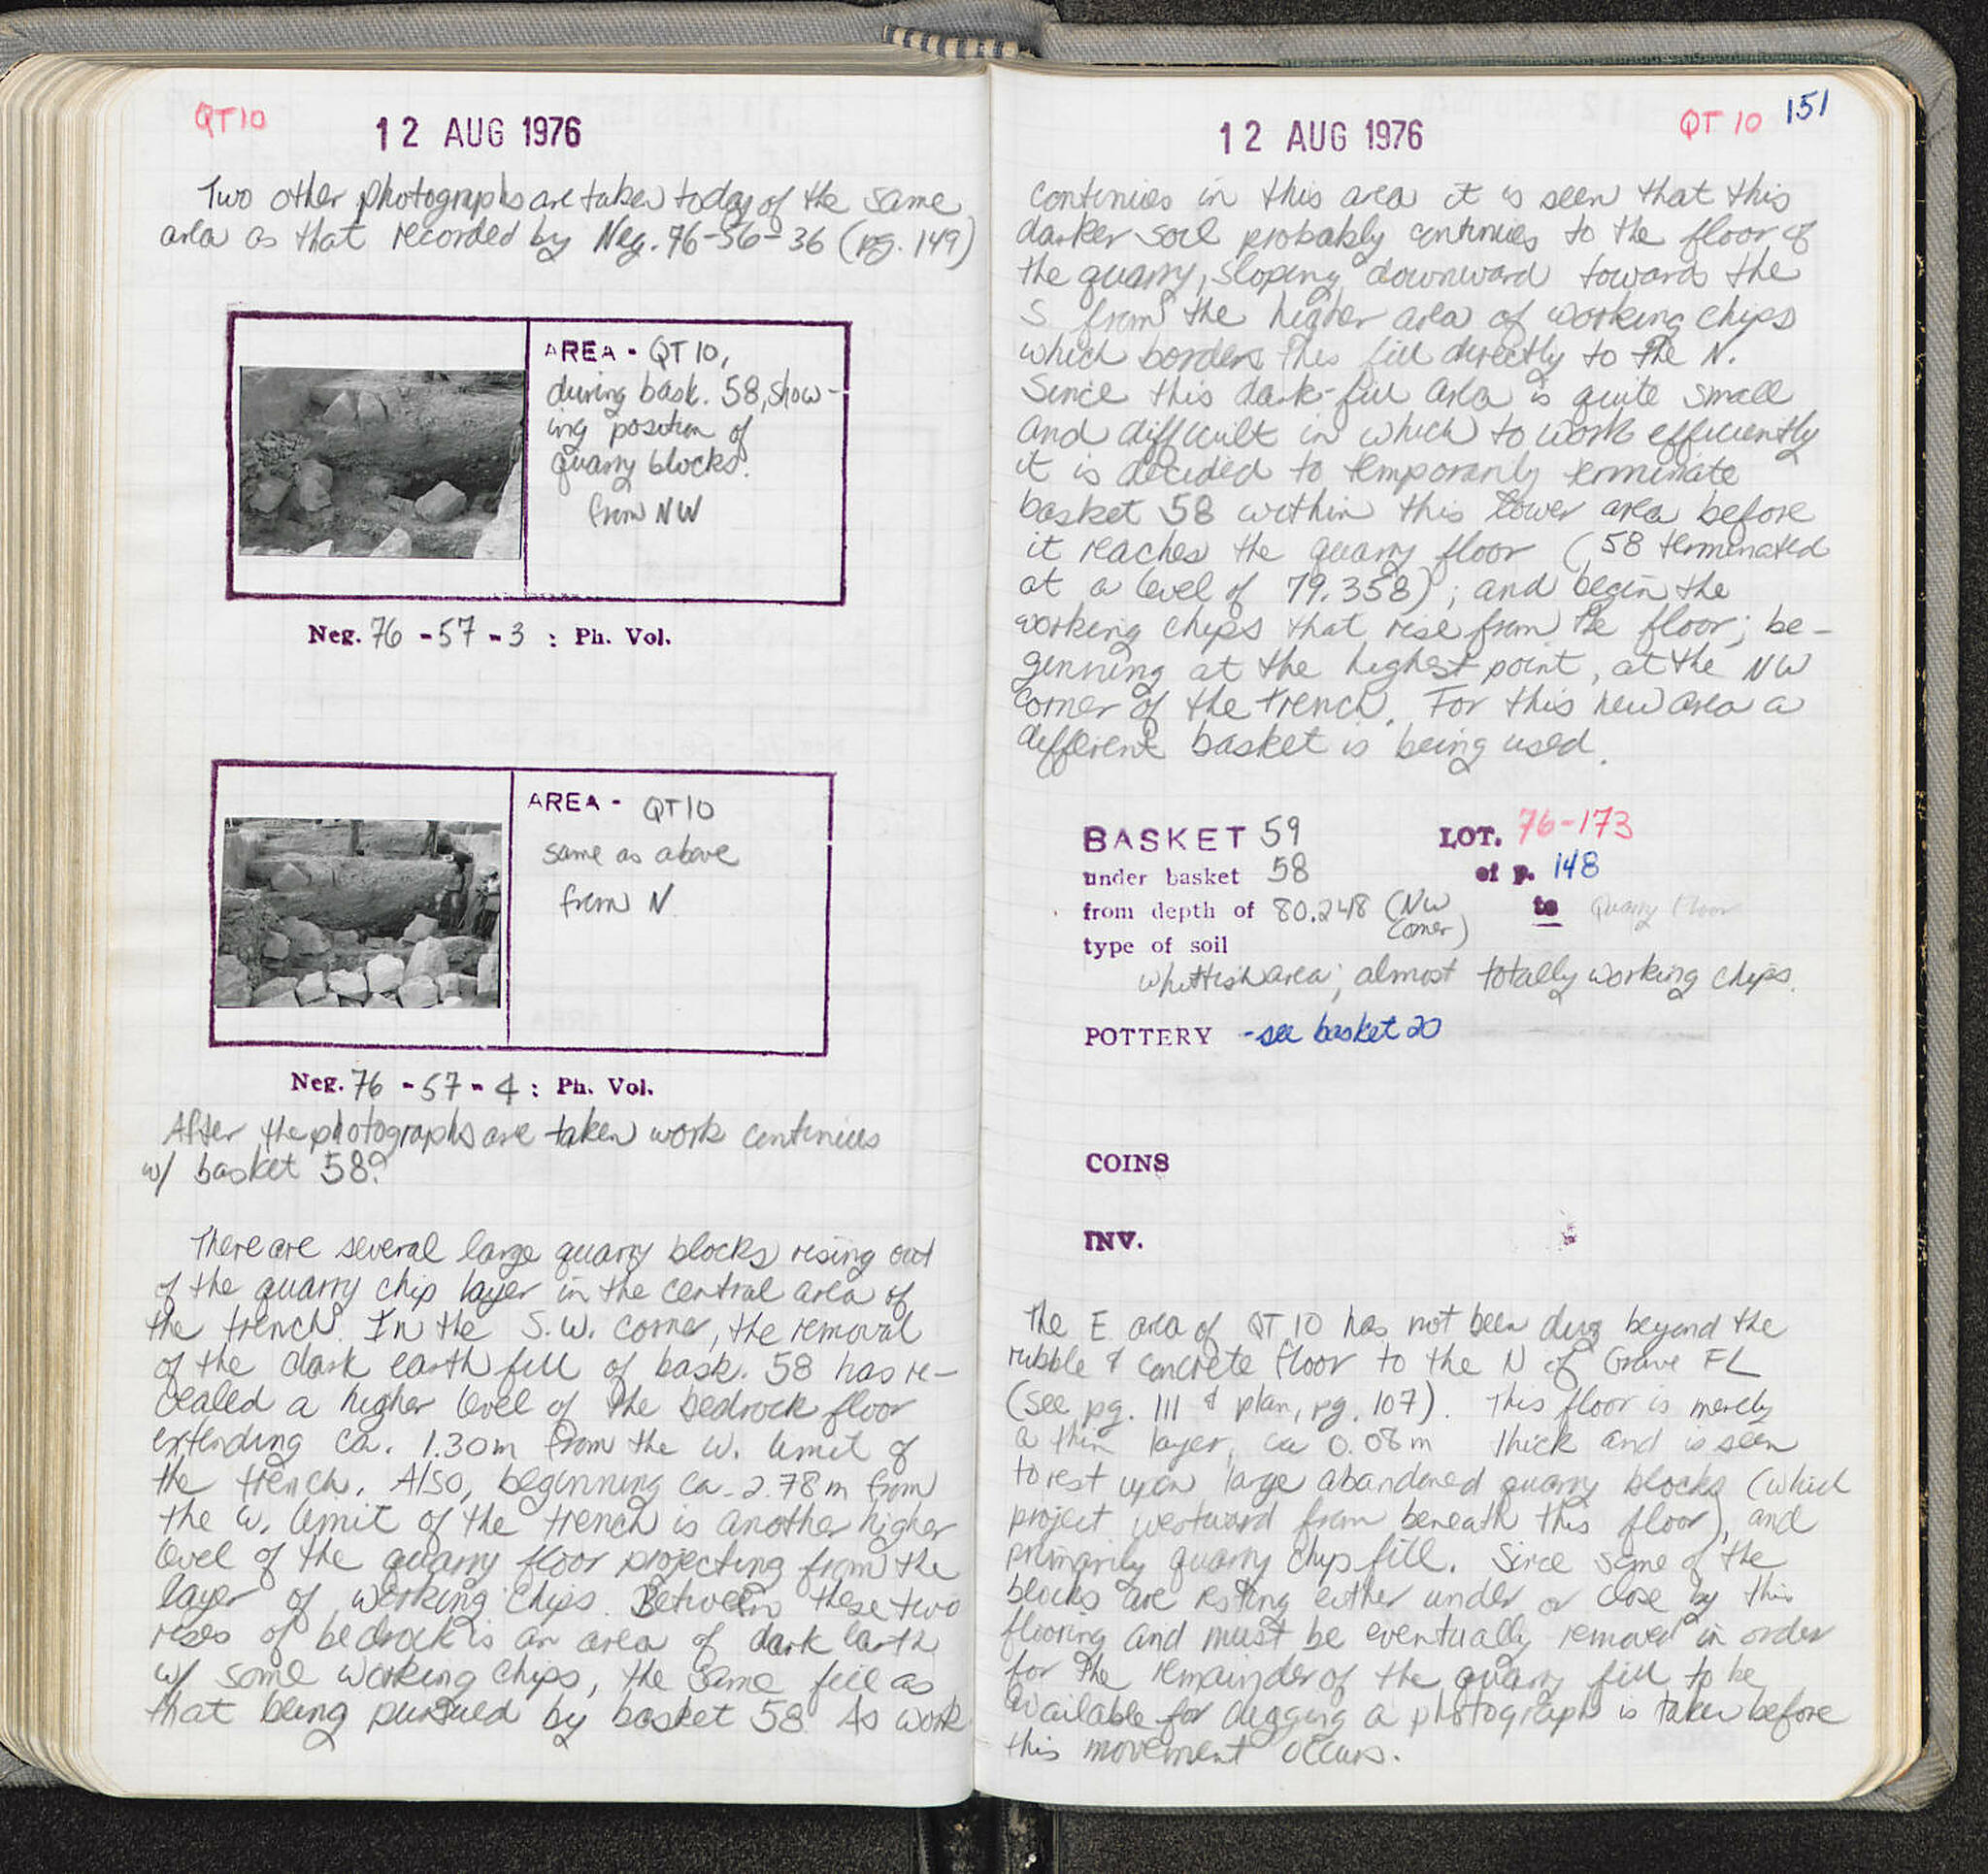 QT 10
12 AUG 1976
Two other photographs are taken today of the same
area as that recorded by Neg. 76-56-36 (pg. 149)
AREA - QT 10,
during bask. 58, show-
ing position of
quarry blocks.
from NW
Neg. 76 - 57 - 3 : Ph. Vol.
AREA - QT 10
same as above
from N
Neg. 76 - 57 - 4 : Ph. Vol.
After the photographs are taken work continues
w/ basket 58.
There are several large quarry blocks rising out
of the quarry chip layer in the central area of
the trench. In the S.W. corner, the removal
of the dark earth fill of bask. 58 has re-
vealed a higher level of the bedrock floor
extending ca. 1.30m from the W. limit of
the trench. Also, beginning ca. 2.78m from
the W. limit of the trench is another higher
level of the quarry floor projecting from the
layer of working chips. Between these two
rises of bedrock is an area of dark earth
w/ some working chips, the same fill as
that being pursued by basket 58. As work
QT 10 151
12 AUG 1976
continues in this area it is seen that this
darker soil probably continues to the floor of
the quarry, sloping downward towards the
S. from the higher area of working chips
which borders this fill directly to the N.
Since this dark-fill area is quite small
and difficult in which to work efficiently
it is decided to temporarily terminate
basket 58 within this lower area before
it reaches the quarry floor (58 terminated
at a level of 79.358); and begin the
working chips that rise from the floor; be-
ginning at the highest point, at the NW
corner of the trench. For this new area a
different basket is being used.
BASKET 59 LOT. 76-173
under basket 58 of p. 148
from depth of 80.248 (NW corner) to Quarry Floor
type of soil
whittish area; almost totally working chips.
POTTERY - see basket 20
COINS
INV.
The E area of QT 10 has not been dug beyond the
rubble & concrete floor to the N of Grave FL
(see pg. 111 & plan, pg. 107). This floor is merely
a thin layer, ca 0.08m thick and is seen
to rest upon large abandoned quarry blocks (which
project westward from beneath this floor), and
primarily quarry chip fill. Since some of the
blocks are resting either under or close by this
flooring and must be eventually removed in order
for the remainder of the quarry fill to be
available for digging a photograph is taken before
this movement occurs.